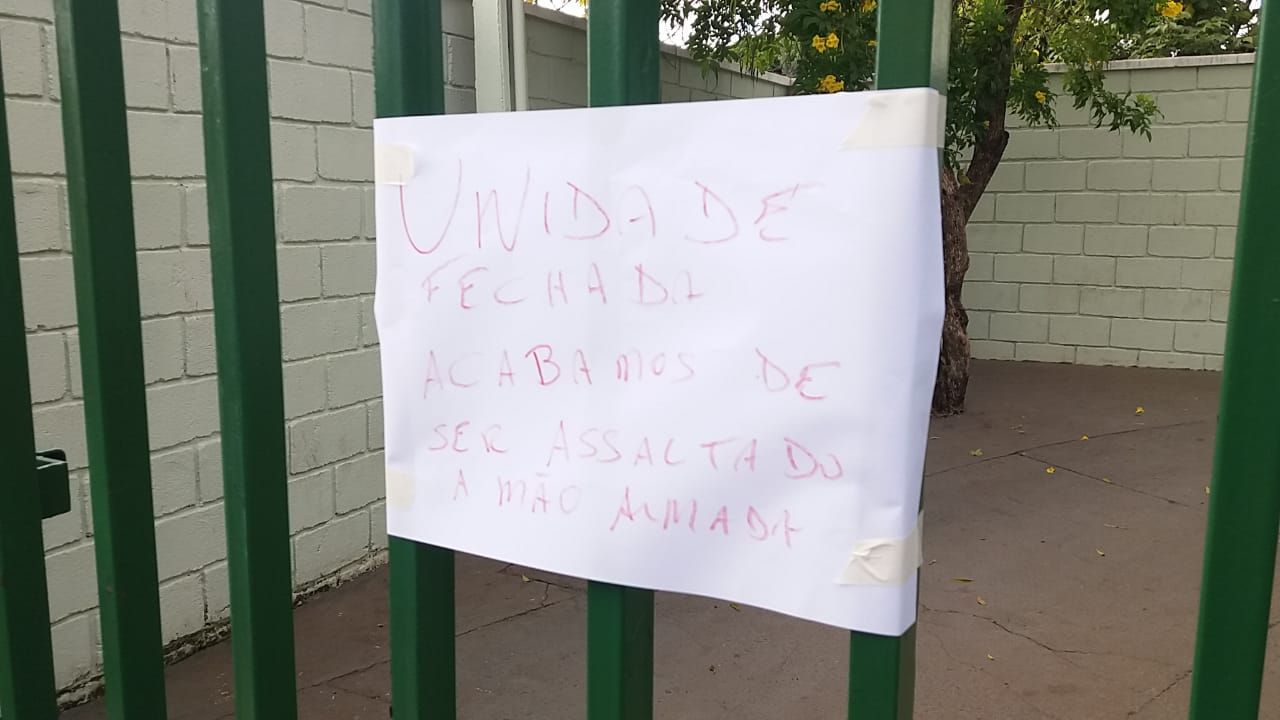 UNIDADE
FECHADA
ACABAMOS DE
SER ASSALTADO
A MÃO ARMADA